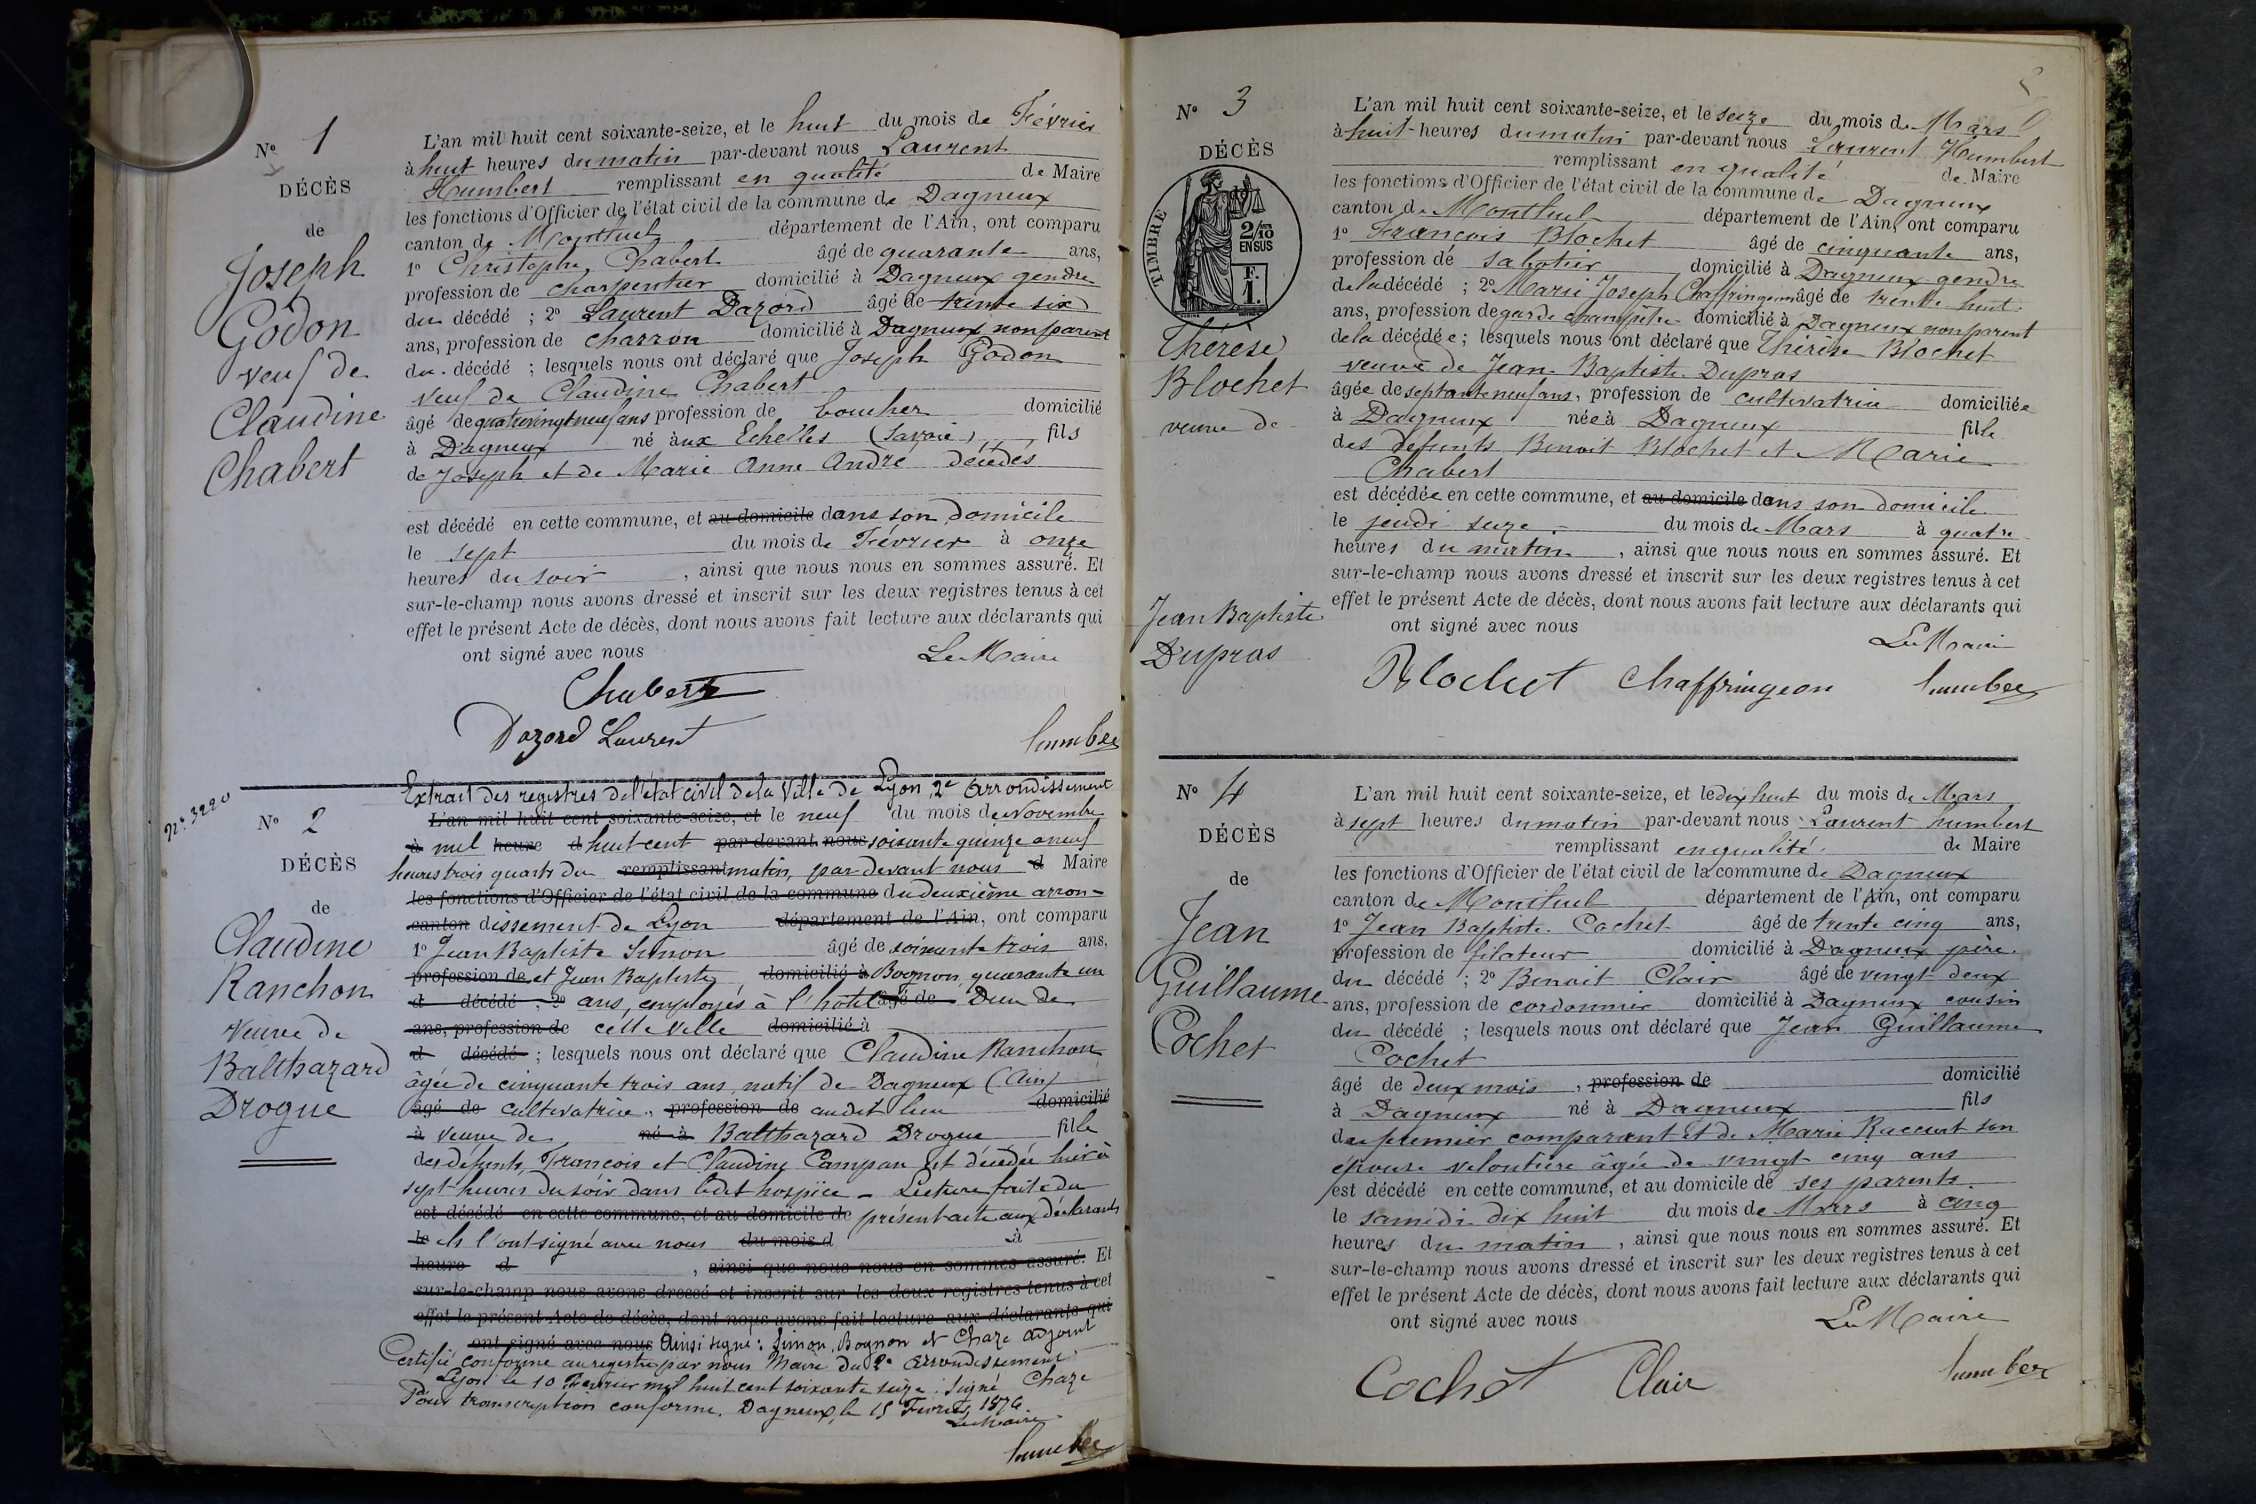 N° 1
DÉCÈS
de
Joseph
Godon
veuf de
Claudine
Chabert
L'an mil huit cent soixante-seize, et le huit du mois de Février
à huit heures du matin par-devant nous Laurent
Humbert remplissant en qualité de Maire
les fonctions d'Officier de l'état civil de la commune de Dagneux
canton de Montluel département de l'Ain, ont comparu
1° Christophe Chabert âgé de quarante ans,
profession de charpentier domicilié à Dagneux gendre
du décédé ; 2° Laurent Dazord âgé de trente six
ans, profession de charron domicilié à Dagneux non parent
du décédé ; lesquels nous ont déclaré que Joseph Godon
veuf de Claudine Chabert
âgé de quatrevingt neuf ans profession de boucher domicilié
à Dagneux né aux Echelles (Savoie) fils
de Joseph et de Marie Anne André décédés
est décédé en cette commune, et au domicile dans son domicile
le sept du mois de Février à onze
heures du soir , ainsi que nous nous en sommes assuré. Et
sur-le-champ nous avons dressé et inscrit sur les deux registres tenus à cet
effet le présent Acte de décès, dont nous avons fait lecture aux déclarants qui
ont signé avec nous
Le Maire
Chabert
Dazord Laurent
humbert
N° 3220
N° 2
DÉCÈS
de
Claudine
Ranchon
Veuve de
Balthazard
Drogue
Extrait des registres de l'état civil de la Ville de Lyon, 2e Arrondissement
L'an mil huit cent soixante-seize, et le neuf du mois de Novembre
à mil heure d huit cent par-devant nous soixante quinze à neuf
heures trois quarts du remplissant matin, par devant nous d Maire
les fonctions d'Officier de l'état civil de la commune du deuxième arron-
canton dissement de Lyon département de l'Ain, ont comparu
1° Jean Baptiste Simon âgé de soixante trois ans,
profession de et Jean Baptiste domicilié à Bognon, quarante un
d décédé ; 2° ans, employés à l'hotel âgé de Dieu de
ans, profession de cette ville domicilié à
d décédé ; lesquels nous ont déclaré que Claudine Ranchon
âgée de cinquante trois ans, natif de Dagneux (Ain)
âgé de cultivatrice profession de audit lieu domicilié
à veuve de né à Balthazard Drogue fille
des défunts François et Claudine Campan est décédée hier à
sept heures du soir dans ledit hospice - Lecture faite du
est décédé en cette commune, et au domicile de présent acte aux déclarants
le ils l'ont signé avec nous du mois d à
heure d , ainsi que nous nous en sommes assuré. Et
sur-le-champ nous avons dressé et inscrit sur les deux registres tenus à cet
effet le présent Acte de décès, dont nous avons fait lecture aux déclarants qui
ont signé avec nous Ainsi signé : Simon, Bognon et Chaze adjoint
Certifié conforme au registre par nous Maire du 2e Arrondissement
Lyon le 10 Février mil huit cent soixante seize : Signé Chaze
Pour transcription conforme. Dagneux, le 15 Février 1876
Le Maire
humbert
N° 3
DÉCÈS
TIMBRE
2/10
EN SUS
F.
1.
Thérèse
Blochet
veuve de
Jean Baptiste
Dupras
L'an mil huit cent soixante-seize, et le seize du mois de Mars
à huit heures du matin par-devant nous Laurent Humbert
remplissant en qualité de Maire
les fonctions d'Officier de l'état civil de la commune de Dagneux
canton de Montluel département de l'Ain, ont comparu
1° François Blochet âgé de cinquante ans,
profession de sabotier domicilié à Dagneux gendre
de la décédé ; 2° Marie Joseph Chaffringeon âgé de trente huit
ans, profession de garde champêtre domicilié à Dagneux non parent
de la décédée ; lesquels nous ont déclaré que Thérèse Blochet
veuve de Jean Baptiste Dupras
âgée de septante neuf ans, profession de cultivatrice domiciliée
à Dagneux née à Dagneux fille
des défunts Benoit Blochet et Marie
Chabert
est décédée en cette commune, et au domicile dans son domicile
le jeudi seize du mois de Mars à quatre
heures du matin , ainsi que nous nous en sommes assuré. Et
sur-le-champ nous avons dressé et inscrit sur les deux registres tenus à cet
effet le présent Acte de décès, dont nous avons fait lecture aux déclarants qui
ont signé avec nous
Le Maire
Blochet Chaffringeon humbert
N° 4
DÉCÈS
de
Jean
Guillaume
Cochet
L'an mil huit cent soixante-seize, et le dix huit du mois de Mars
à sept heures du matin par-devant nous Laurent humbert
remplissant en qualité de Maire
les fonctions d'Officier de l'état civil de la commune de Dagneux
canton de Montluel département de l'Ain, ont comparu
1° Jean Baptiste Cochet âgé de trente cinq ans,
profession de filateur domicilié à Dagneux père
du décédé ; 2° Benoit Clair âgé de vingt deux
ans, profession de cordonnier domicilié à Dagneux cousin
du décédé ; lesquels nous ont déclaré que Jean Guillaume
Cochet
âgé de deux mois , profession de domicilié
à Dagneux né à Dagneux fils
du premier comparant et de Marie Raccurt son
épouse veloutière âgée de vingt cinq ans
est décédé en cette commune, et au domicile de ses parents
le samedi dix huit du mois de Mars à cinq
heures du matin , ainsi que nous nous en sommes assuré. Et
sur-le-champ nous avons dressé et inscrit sur les deux registres tenus à cet
effet le présent Acte de décès, dont nous avons fait lecture aux déclarants qui
ont signé avec nous
Le Maire
Cochet Clair humbert